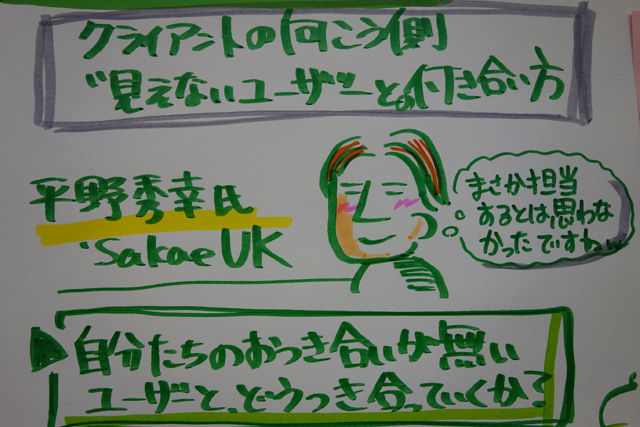 クライアントの向こう側
"見えないユーザー"との付き合い方
平野秀幸氏
Sakae UK
まさか担当
するとは思わな
かったですわ
自分たちのおつき合いが無い
ユーザーと、どうつき合っていくか?